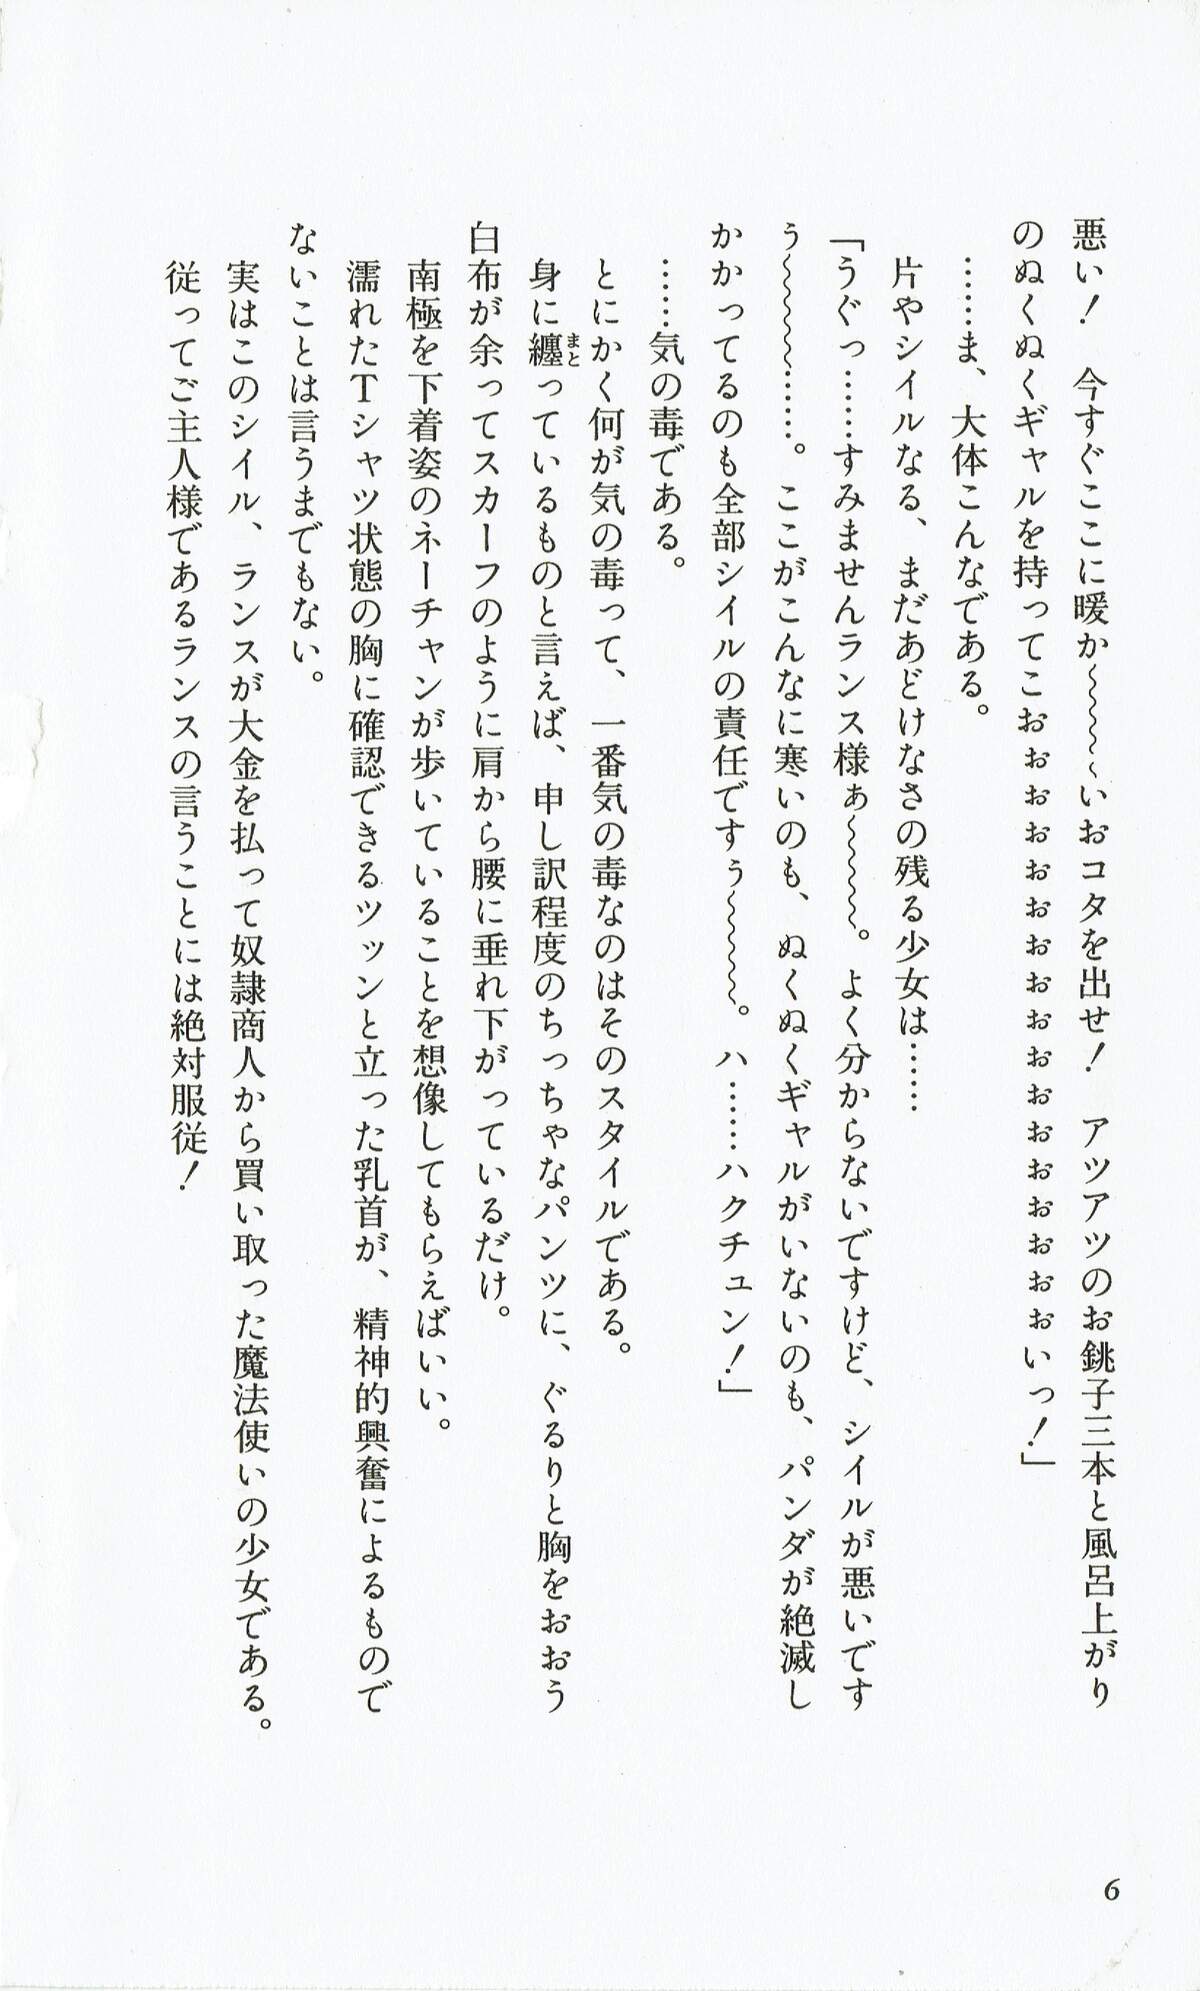 悪い！　今すぐここに暖か〜〜〜〜いおコタを出せ！　アツアツのお銚子三本と風呂上がり
のぬくぬくギャルを持ってこおぉぉぉぉぉぉぉぉぉぉぉぉぉぉぉぉぉいっ！」
　……ま、大体こんなである。
　片やシイルなる、まだあどけなさの残る少女は……
「うぐっ……すみませんランス様ぁ〜〜〜〜。よく分からないですけど、シイルが悪いです
ぅ〜〜〜〜……。ここがこんなに寒いのも、ぬくぬくギャルがいないのも、パンダが絶滅し
かかってるのも全部シイルの責任ですぅ〜〜〜〜。ハ……ハクチュン！」
　……気の毒である。
　とにかく何が気の毒って、一番気の毒なのはそのスタイルである。
　身に纏っているものと言えば、申し訳程度のちっちゃなパンツに、ぐるりと胸をおおう
白布が余ってスカーフのように肩から腰に垂れ下がっているだけ。
　南極を下着姿のネーチャンが歩いていることを想像してもらえばいい。
　濡れたＴシャツ状態の胸に確認できるツッンと立った乳首が、精神的興奮によるもので
ないことは言うまでもない。
　実はこのシイル、ランスが大金を払って奴隷商人から買い取った魔法使いの少女である。
　従ってご主人様であるランスの言うことには絶対服従！
まと
6